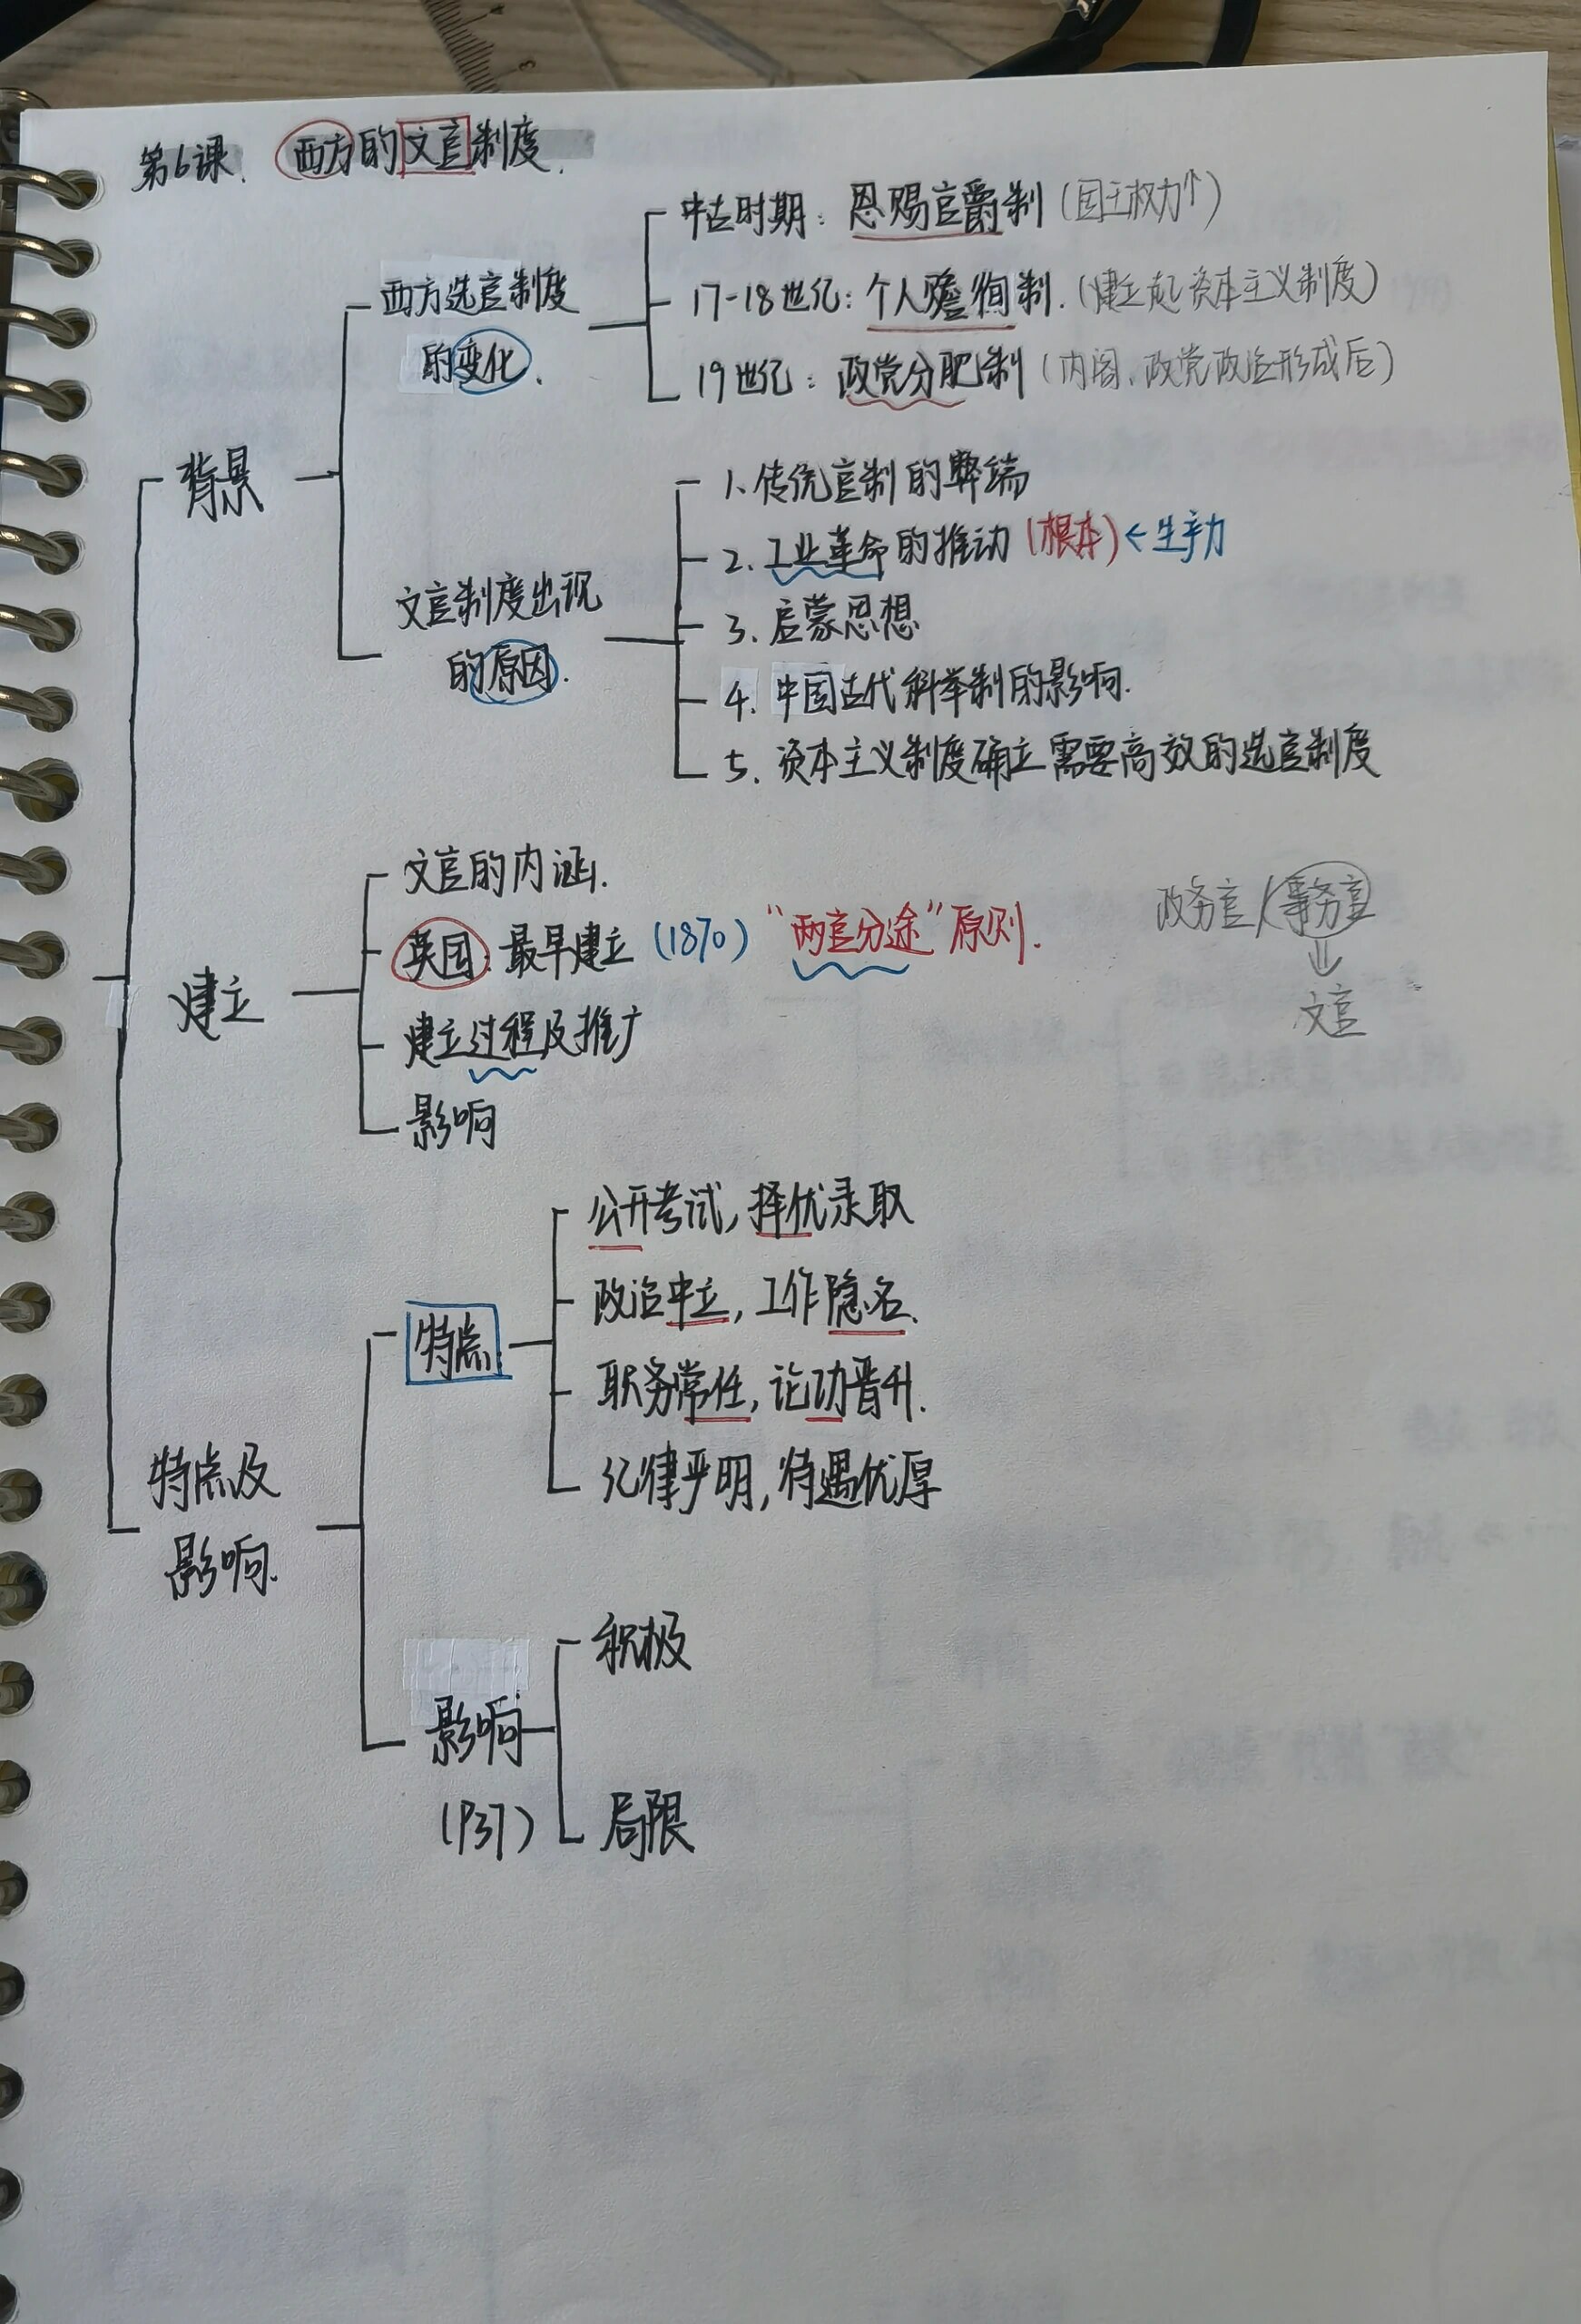 第6课. 西方的文官制度.
背景
西方选官制度
的变化.
中古时期：恩赐官爵制（国王权力↑）
17-18世纪：个人赡徇制.（建立起资本主义制度）
19世纪：政党分肥制（内阁、政党政治形成后）
文官制度出现
的原因.
1.传统官制的弊端
2.工业革命的推动（根本）←生产力
3.启蒙思想
4.中国古代科举制的影响.
5.资本主义制度确立需要高效的选官制度
建立
文官的内涵.
英国：最早建立（1870）“两官分途”原则.
政务官/事务官
⇓
文官
建立过程及推广
影响
特点及
影响.
特点
公开考试，择优录取
政治中立，工作隐名.
职务常任，论功晋升.
纪律严明，待遇优厚
影响
（P37）
积极
局限